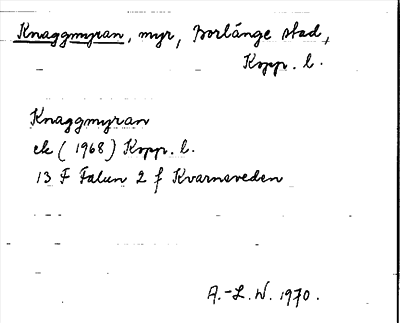 Knaggmyran, myr, Borlänge stad,
Kopp. l.
Knaggmyran
ek (1968) Kopp. l.
13 F Falun 2 f Kvarnsveden
A.-L. W. 1970.